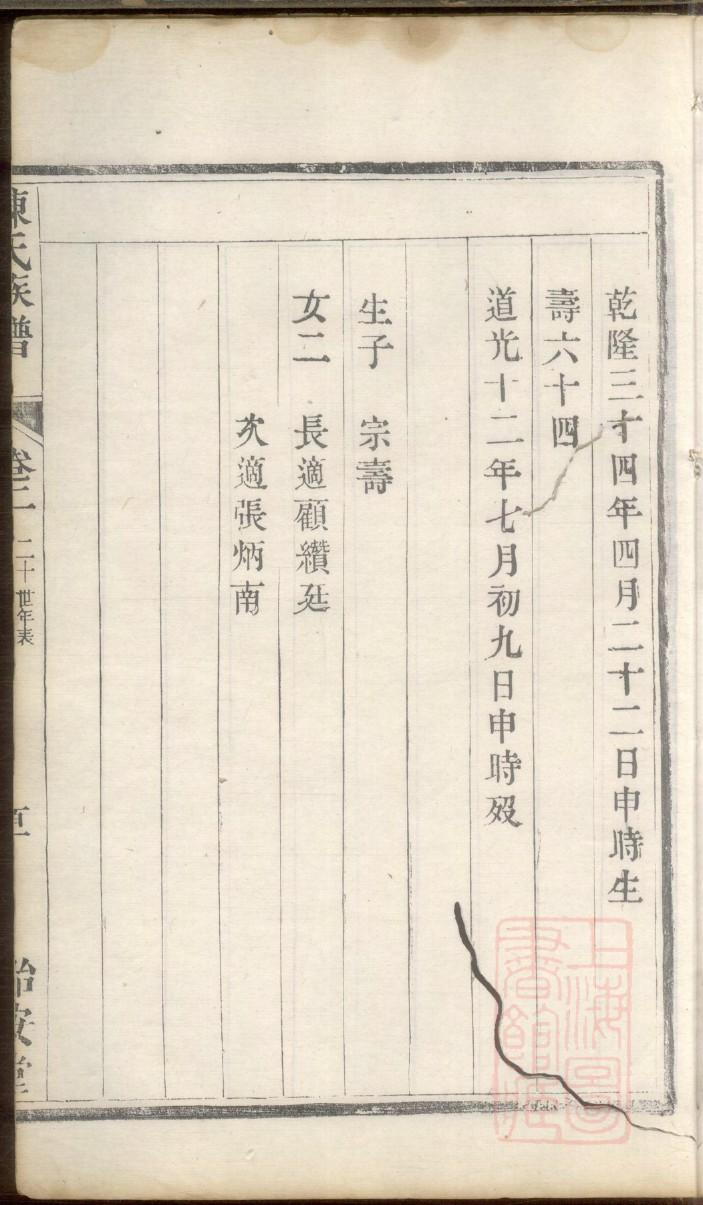 乾隆三十四年四月二十二日申時生
壽六十四
道光十二年七月初九日申時歿
生子　宗壽
女二　長適顧纘廷
次適張炳南
陳氏族譜
卷二
二十世年表
上海圖書館藏